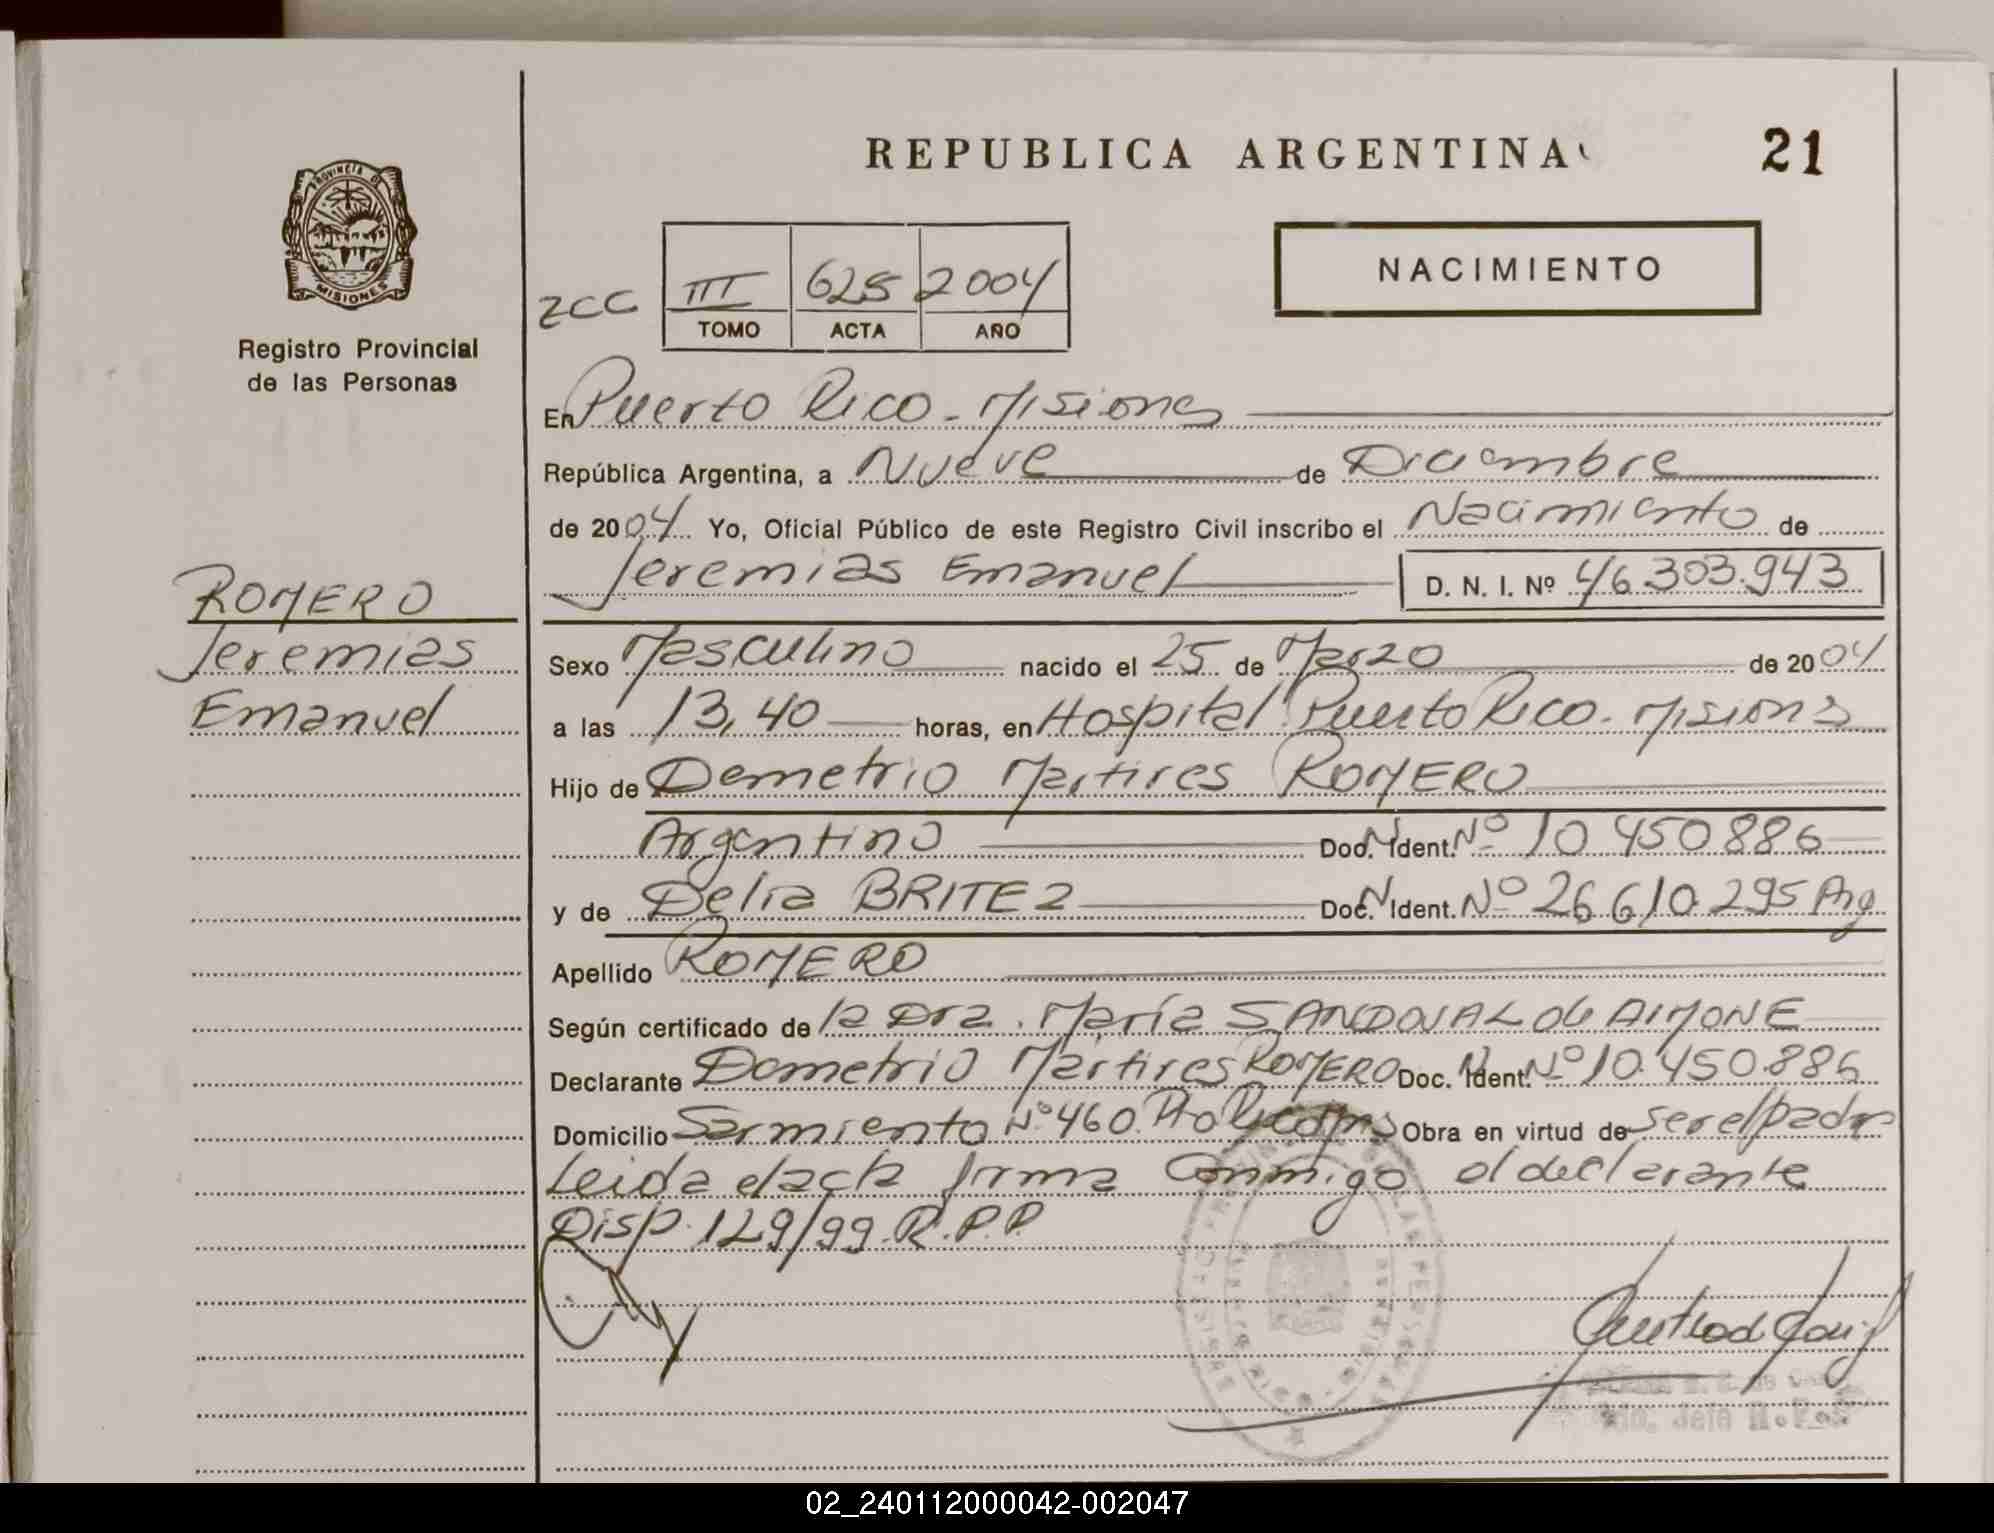 REPUBLICA ARGENTINA
21
PROVINCIA DE
MISIONES
Registro Provincial
de las Personas
NACIMIENTO
ZCC
III 625 2004
TOMO ACTA AÑO
En Puerto Rico - Misiones
República Argentina, a Nueve de Diciembre
de 2004 Yo, Oficial Público de este Registro Civil inscribo el Nacimiento de
Jeremias Emanuel D. N. I. Nº 46.303.943
ROMERO
Jeremias
Emanuel
Sexo Masculino nacido el 25 de Marzo de 2004
a las 13,40 horas, en Hospital Puerto Rico - Misiones
Hijo de Demetrio Martires ROMERO
Argentino Doc. N. Ident. Nº 10 450 886
y de Delia BRITEZ Doc. N. Ident. Nº 26 610 295 Arg
Apellido ROMERO
Según certificado de la Dra. María SANDOVAL de AIMONE
Declarante Demetrio Martires ROMERO Doc. N. Ident. Nº 10.450.886
Domicilio Sarmiento Nº 460 Pto Rico Mns Obra en virtud de ser el padre
Leida el acta firma Conmigo el declarante
Disp. 129/99 R.P.P.
02_240112000042-002047